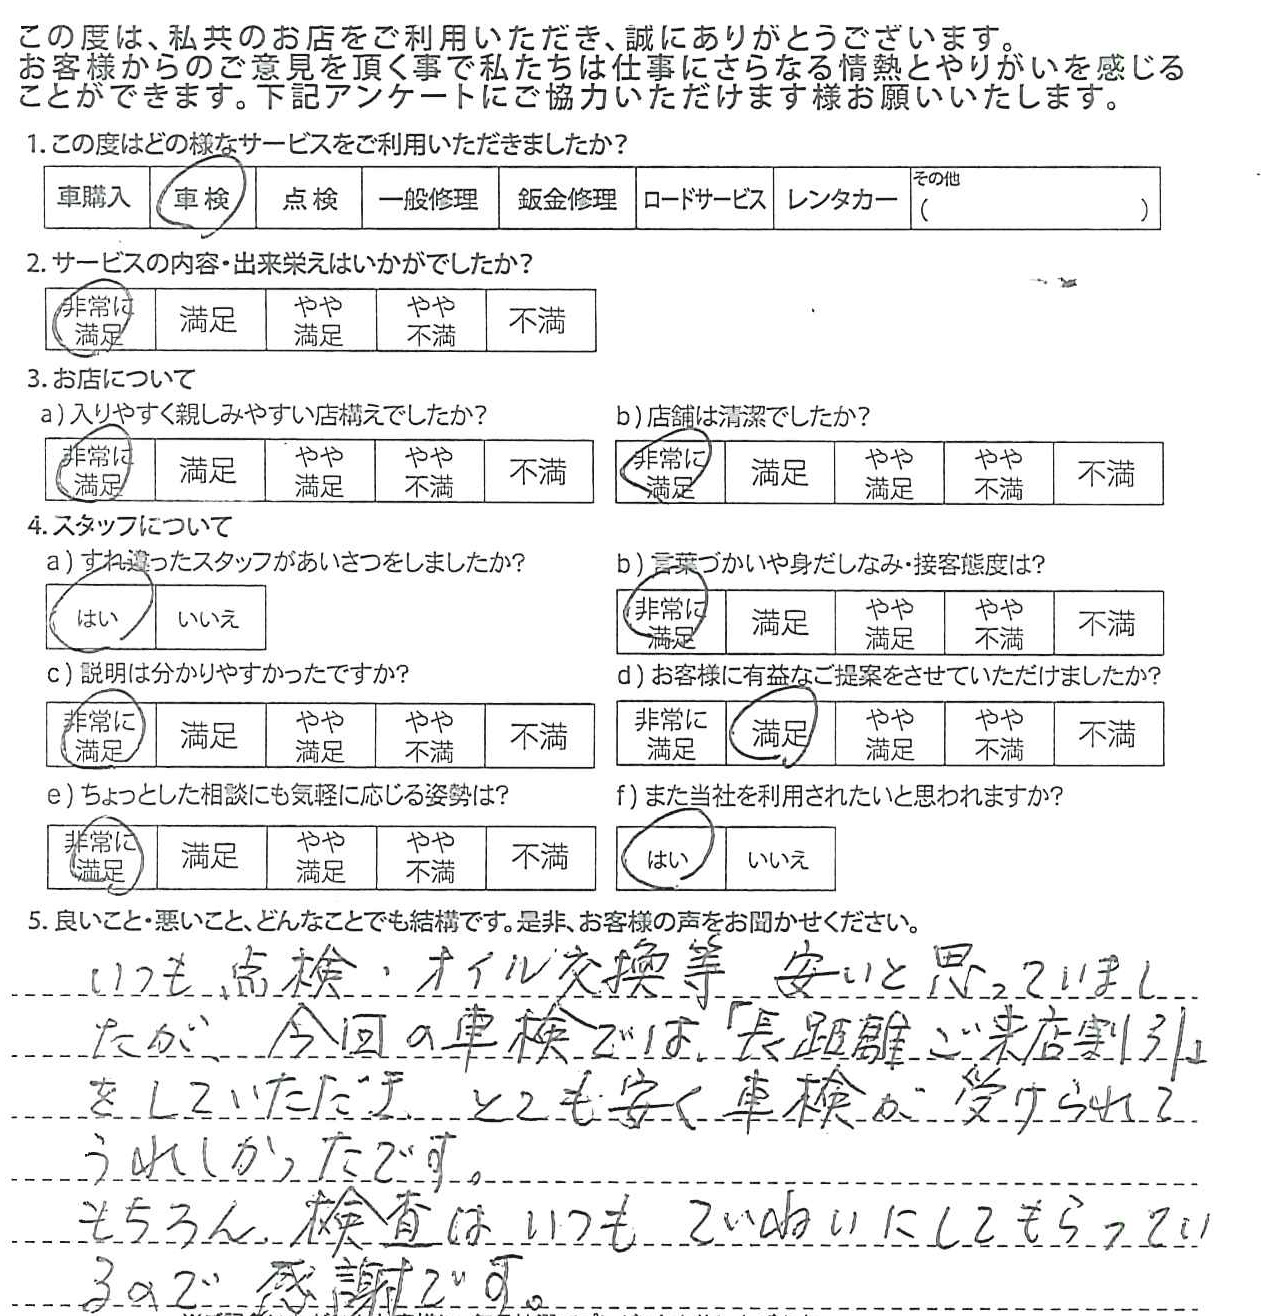 この度は、私共のお店をご利用いただき、誠にありがとうございます。
お客様からのご意見を頂く事で私たちは仕事にさらなる情熱とやりがいを感じる
ことができます。下記アンケートにご協力いただけます様お願いいたします。
1.この度はどの様なサービスをご利用いただきましたか?
車購入 車検 点検 一般修理 鈑金修理 ロードサービス レンタカー その他 ( )
2.サービスの内容・出来栄えはいかがでしたか?
非常に満足 満足 やや満足 やや不満 不満
3.お店について
a)入りやすく親しみやすい店構えでしたか? b)店舗は清潔でしたか?
非常に満足 満足 やや満足 やや不満 不満 非常に満足 満足 やや満足 やや不満 不満
4.スタッフについて
a)すれ違ったスタッフがあいさつをしましたか? b)言葉づかいや身だしなみ・接客態度は?
はい いいえ 非常に満足 満足 やや満足 やや不満 不満
c)説明は分かりやすかったですか? d)お客様に有益なご提案をさせていただけましたか?
非常に満足 満足 やや満足 やや不満 不満 非常に満足 満足 やや満足 やや不満 不満
e)ちょっとした相談にも気軽に応じる姿勢は? f)また当社を利用されたいと思われますか?
非常に満足 満足 やや満足 やや不満 不満 はい いいえ
5.良いこと・悪いこと、どんなことでも結構です。是非、お客様の声をお聞かせください。
いつも点検、オイル交換等 安いと思っていまし
たが、今回の車検では、「長距離ご来店割引」
をしていただき、とても安く車検が受けられて
うれしかったです。
もちろん、検査はいつもていねいにしてもらってい
るので感謝です。